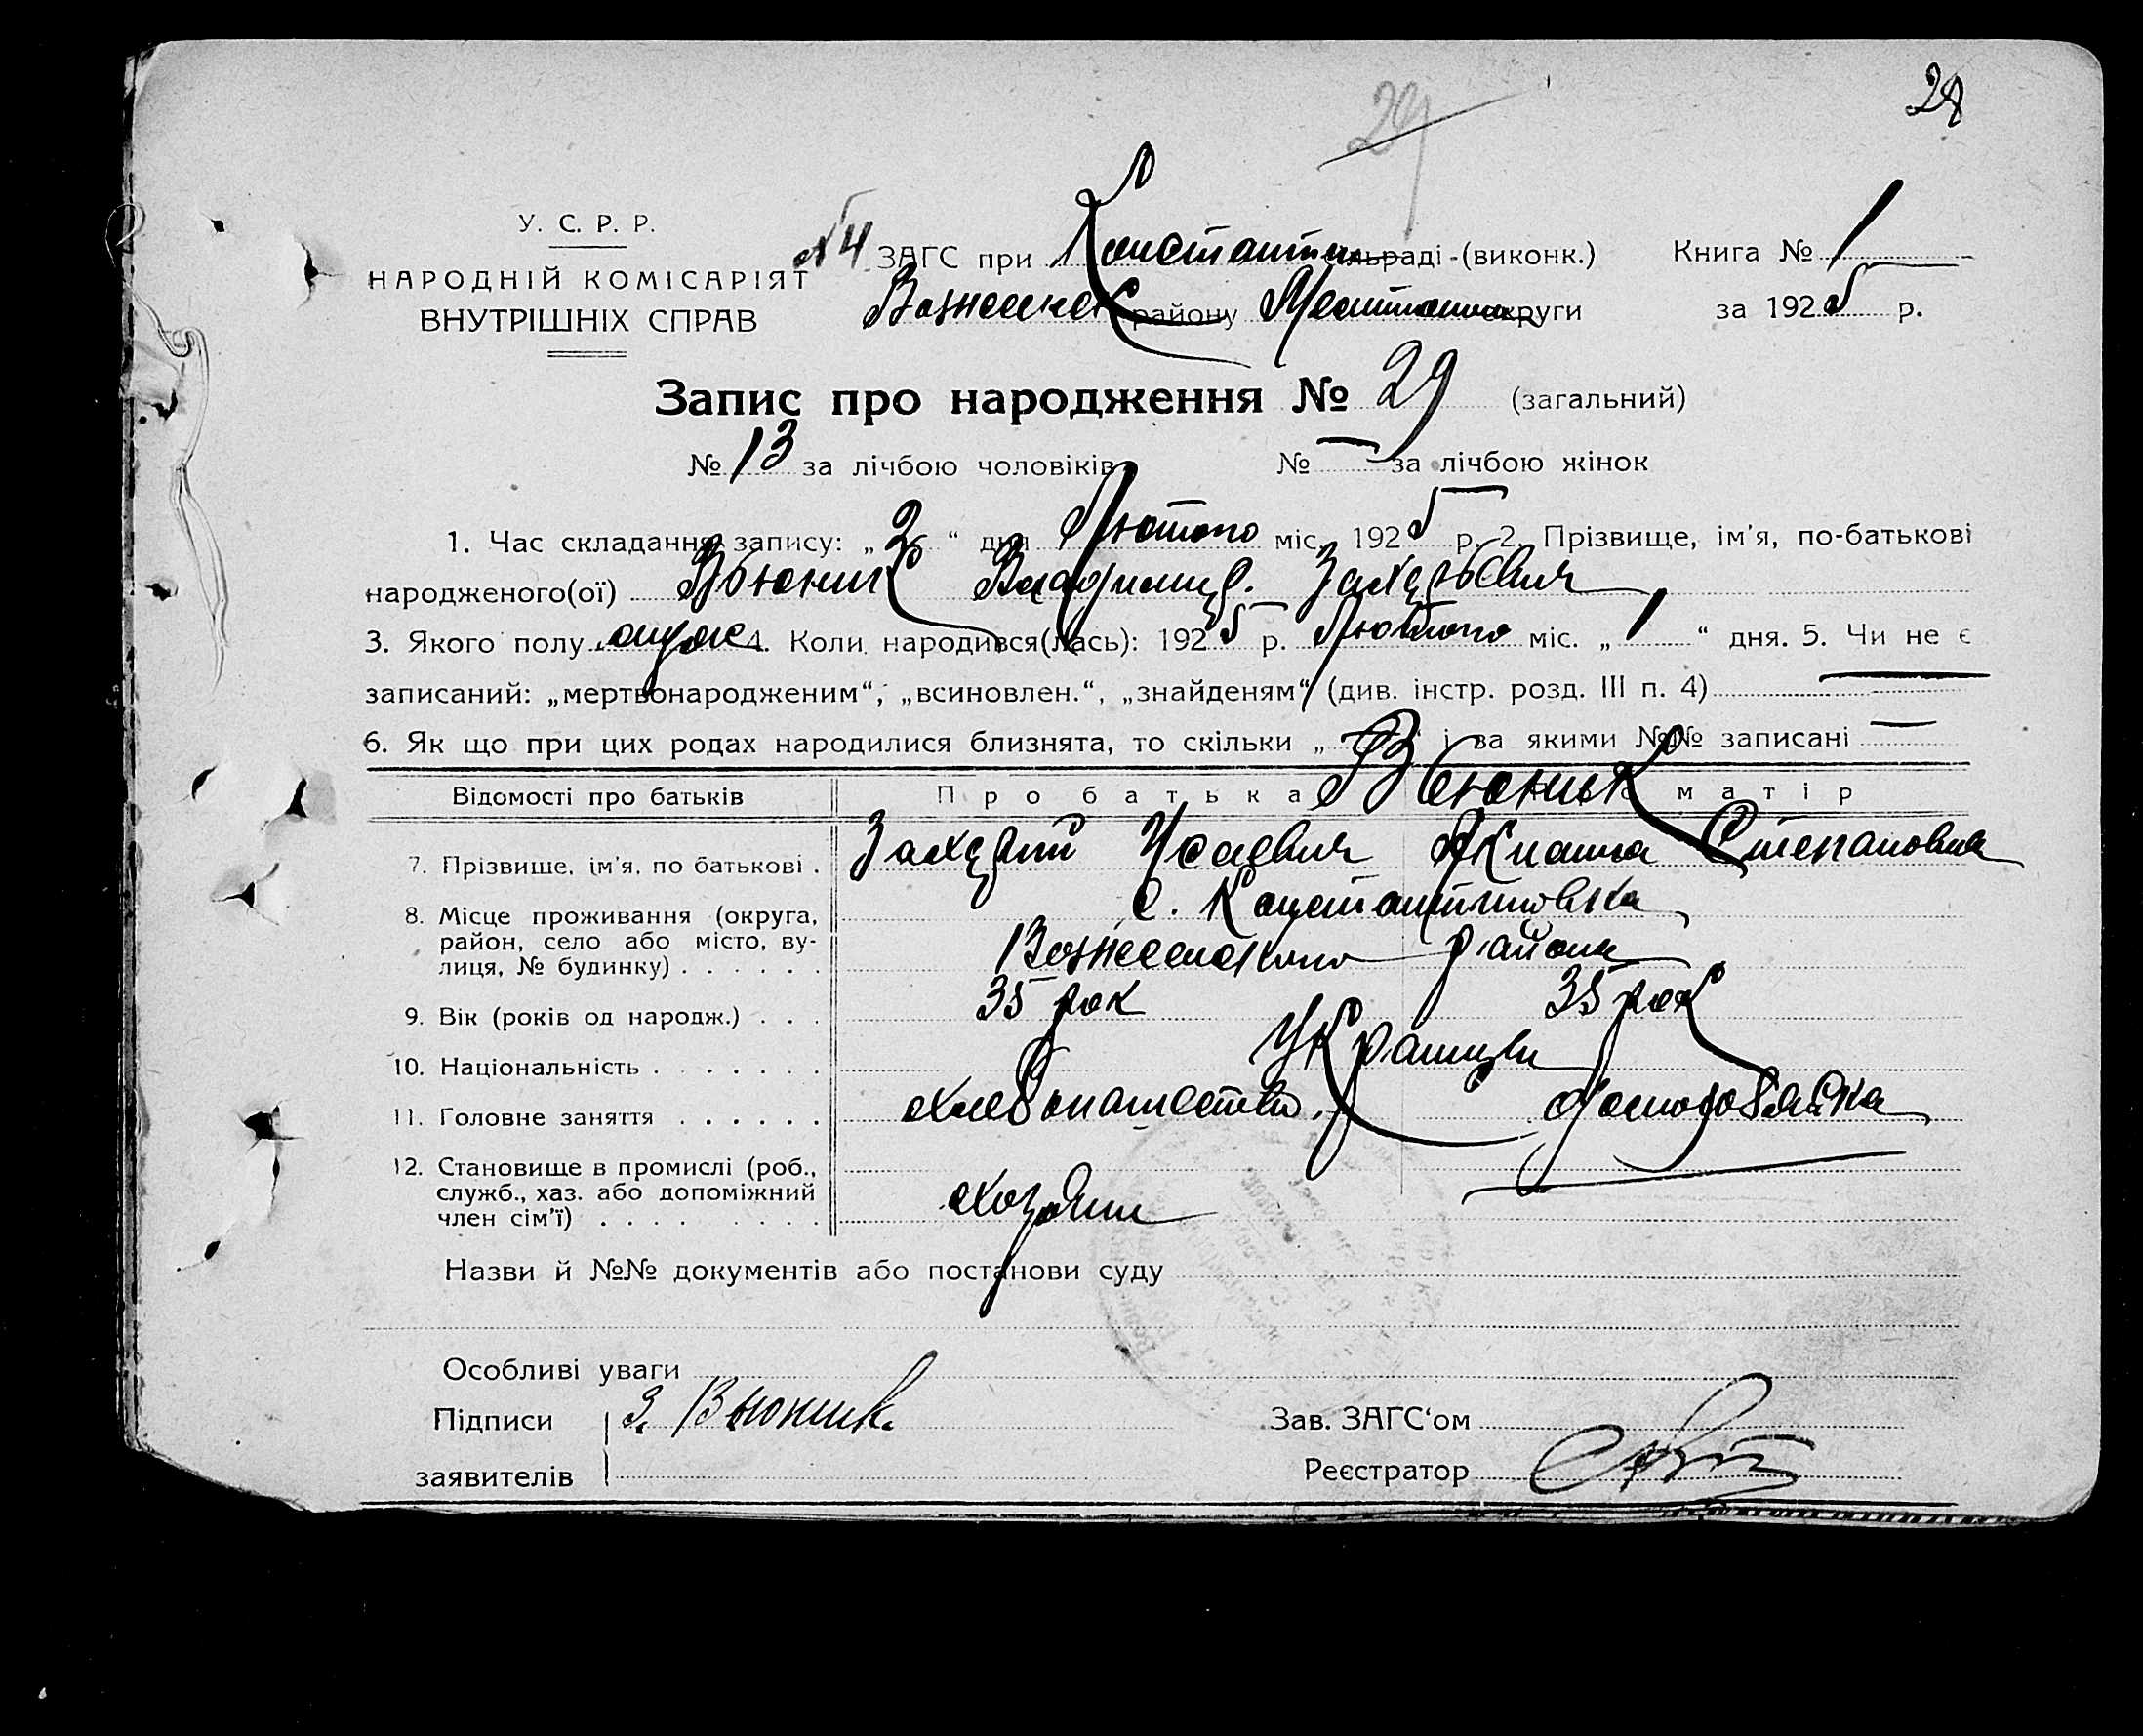 28
29
У. С. Р. Р.
НАРОДНІЙ КОМІСАРІЯТ
ВНУТРІШНІХ СПРАВ
№ 4 ЗАГС при Константин сільраді-(виконк.) Книга № 1
Вознесенск району округи за 1925 р.
Запис про народження № 29 (загальний)
№ 13 за лічбою чоловіків № — за лічбою жінок
1. Час складання запису: „2“ дня Лютого міс. 1925 р. 2. Прізвище, ім'я, по-батькові
народженого(ої) Вьюник Владимир. Захарьевич
3. Якого полу муж 4. Коли народився(лась): 1925 р. Лютого міс. „1“ дня. 5. Чи не є
записаний: „мертвонародженим“, „всиновлен.“, „знайденям“ (див. інстр. розд. III п. 4) —
6. Як що при цих родах народилися близнята, то скільки „ — “ і за якими №№ записані —
Відомості про батьків Про батька Про матір
Вьюник
7. Прізвище, ім'я, по батькові . Захарий Исаевич Акилина Степановна
8. Місце проживання (округа, район, село або місто, вулиця, № будинку) . . . . . . с. Константиновка
Вознесенского района
9. Вік (років од народж.) . . . 35 рок 35 рок
10. Національність . . . . . . . Украинцы
11. Головне заняття . . . . . . хлебопашество. домохозяйка
12. Становище в промислі (роб., служб., хаз. або допоміжний член сім'ї) . . . . . . . . . хозяин
Назви й №№ документів або постанови суду
Особливі уваги
Підписи З. Вьюник. Зав. ЗАГС'ом
заявителів Реєстратор